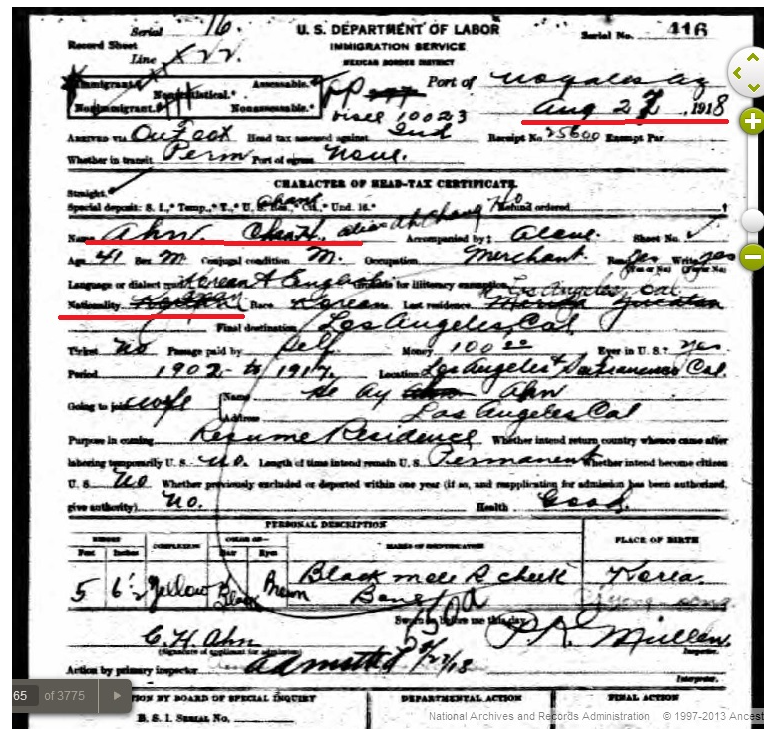 Serial 16. U. S. DEPARTMENT OF LABOR Serial No. 416
Record Sheet IMMIGRATION SERVICE
Line MEXICAN BORDER DISTRICT
Immigrant. Assessable. Port of Nogales Az
Nonstatistical.*
Nonimmigrant. Nonassessable. Aug 27, 1918
visee 10023
ARRIVED VIA On Foot Head tax assessed against Ind Receipt No. 25600 Exempt Par
Whether in transit Perm Port of egress None.
CHARACTER OF HEAD-TAX CERTIFICATE.
Straight.
Special deposit: S. I.,* Temp.,* T.,* Und. 16.* Refund ordered
Name Ahn, Chan H. alias Ah Chang Accompanied by Alone Sheet No.
Age 41 Sex M. Conjugal condition M. Occupation Merchant. Read Yes Write yes
(Yes or No) (Yes or No)
Language or dialect Korean & English Grounds for illiteracy exemption
Los Angeles, Cal
Nationality Race Korean Last residence Merida Yucatan
Final destination Los Angeles, Cal
Ticket No Passage paid by Self Money 100 00 Ever in U. S.? yes
Period 1902 - to 1917. Location Los Angeles & San Francisco Cal.
Going to join wife Name Ahn
Address Los Angeles Cal
Purpose in coming Resume Residence Whether intend return country whence came after
laboring temporarily U. S. No. Length of time intend remain U. S. Permanent Whether intend become citizen
U. S. No Whether previously excluded or deported within one year (if so, and reapplication for admission has been authorized,
give authority) No. Health Good.
PERSONAL DESCRIPTION
HEIGHT COMPLEXION COLOR OF— MARKS OF IDENTIFICATION PLACE OF BIRTH
Feet Inches Hair Eyes
5 6½ Yellow Black Brown Black mole R cheek Korea.
Sworn to before me this day.
C. H. Ahn P. R. Mullen
(Signature of applicant for admission) Inspector.
Action by primary inspector admitted 8/27/18
Interpreter.
ACTION BY BOARD OF SPECIAL INQUIRY DEPARTMENTAL ACTION FINAL ACTION
B. S. I. SERIAL No.
65 of 3775
National Archives and Records Administration © 1997-2013 Ancest